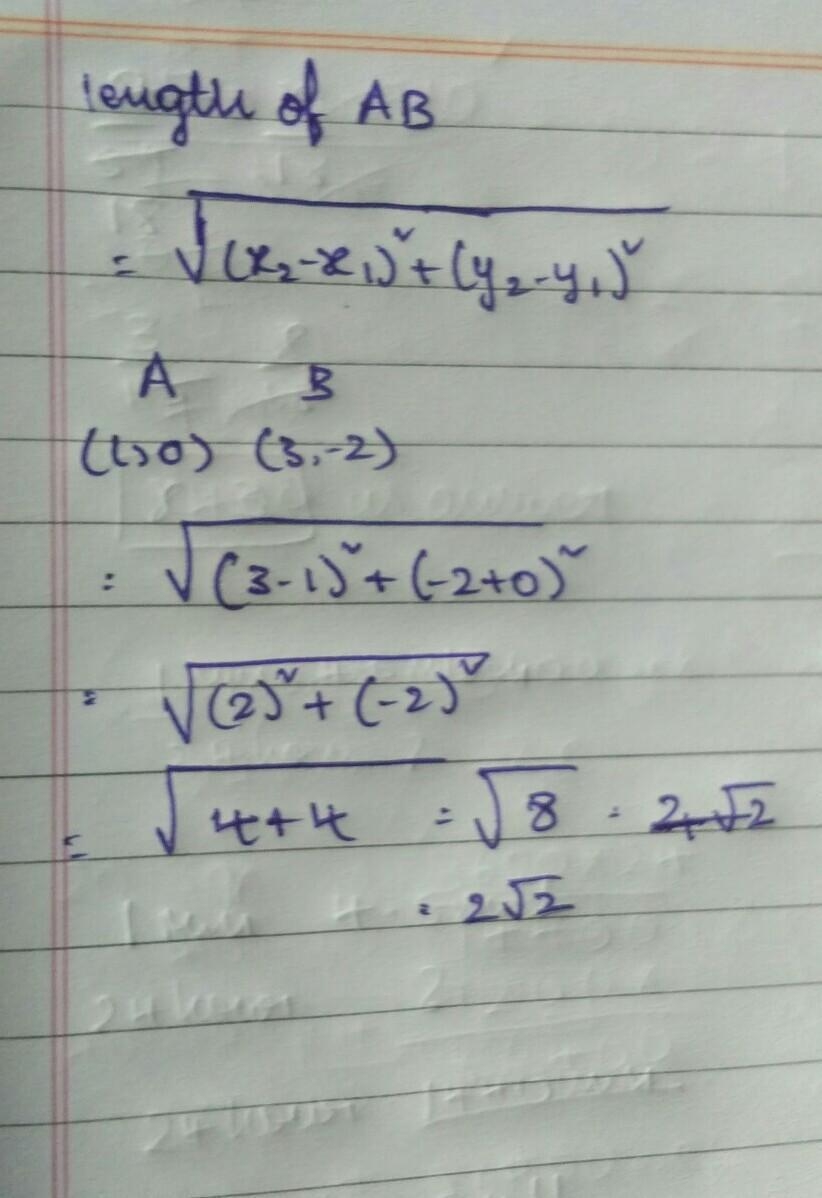 length of AB
= √(x₂-x₁)²+(y₂-y₁)²
A B
(1,0) (3,-2)
= √(3-1)²+(-2+0)²
= √(2)²+(-2)²
= √4+4 = √8 = 2√2
= 2√2